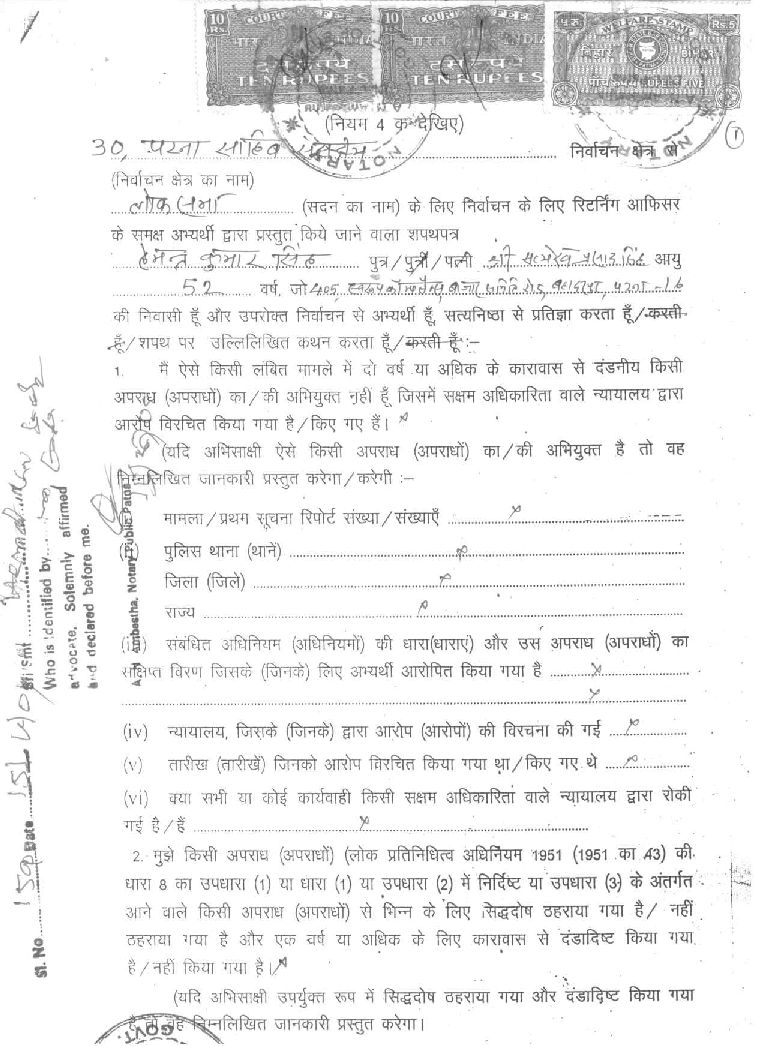 10 COURT FEE
Rs. भारत INDIA
दस रुपये
TEN RUPEES
10 COURT FEE
Rs. भारत INDIA
दस रुपये
TEN RUPEES
५ रु. WELFARE STAMP Rs.5
बिहार
पाँच रुपये RUPEES FIVE
NOTARY
NOTARY
(नियम 4 क देखिए)
1
30, पटना साहिब निर्वाचन क्षेत्र से
(निर्वाचन क्षेत्र का नाम)
लोक सभा (सदन का नाम) के लिए निर्वाचन के लिए रिटर्निंग आफिसर
के समक्ष अभ्यर्थी द्वारा प्रस्तुत किये जाने वाला शपथपत्र
हेमन्त कुमार सिंह पुत्र/पुत्री/पत्नी श्री प्रसाद सिंह आयु
52 वर्ष, जो 405, रोड, पटना-16
की निवासी हूँ और उपरोक्त निर्वाचन से अभ्यर्थी हूँ, सत्यनिष्ठा से प्रतिज्ञा करता हूँ/करती
हूँ/शपथ पर उल्लिलिखित कथन करता हूँ/करती हूँ :–
1. मैं ऐसे किसी लंबित मामले में दो वर्ष या अधिक के कारावास से दंडनीय किसी
अपराध (अपराधों) का/की अभियुक्त नहीं हूँ, जिसमें सक्षम अधिकारिता वाले न्यायालय द्वारा
आरोप विरचित किया गया है/किए गए हैं।
(यदि अभिसाक्षी ऐसे किसी अपराध (अपराधों) का/की अभियुक्त है तो वह
निम्नलिखित जानकारी प्रस्तुत करेगा/करेगी :–
मामला/प्रथम सूचना रिपोर्ट संख्या/संख्याएँ x
पुलिस थाना (थानें) x
जिला (जिले) x
राज्य x
(iii) संबंधित अधिनियम (अधिनियमों) की धारा(धाराएं) और उस अपराध (अपराधों) का
संक्षिप्त विरण जिसके (जिनके) लिए अभ्यर्थी आरोपित किया गया है x
x
(iv) न्यायालय, जिसके (जिनके) द्वारा आरोप (आरोपों) की विरचना की गई x
(v) तारीख (तारीखें) जिनको आरोप विरचित किया गया था/किए गए थे x
(vi) क्या सभी या कोई कार्यवाही किसी सक्षम अधिकारिता वाले न्यायालय द्वारा रोकी
गई है/हैं x
2. मुझे किसी अपराध (अपराधों) (लोक प्रतिनिधित्व अधिनियम 1951 (1951 का 43) की
धारा 8 का उपधारा (1) या धारा (1) या उपधारा (2) में निर्दिष्ट या उपधारा (3) के अंतर्गत
आने वाले किसी अपराध (अपराधों) से भिन्न के लिए सिद्धदोष ठहराया गया है/ नहीं
ठहराया गया है और एक वर्ष या अधिक के लिए कारावास से दंडादिष्ट किया गया
है/नहीं किया गया है।
(यदि अभिसाक्षी उपर्युक्त रूप में सिद्धदोष ठहराया गया और दंडादिष्ट किया गया
है तो वह निम्नलिखित जानकारी प्रस्तुत करेगा।
GOVT.
Sl. No. Date
Sri/Smt
Who is identified by
advocate, Solemnly affirmed
and declared before me.
Ambastha, Notary Public Patna